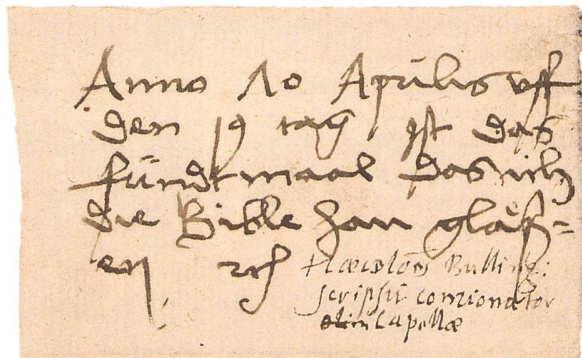 Anno 10 Aprilis vff
den 19 tag ist das
fündt maal das ich
die Bible han gläß=
en ꝛc
Bulling:
scripsit concionator
olim Capellæ